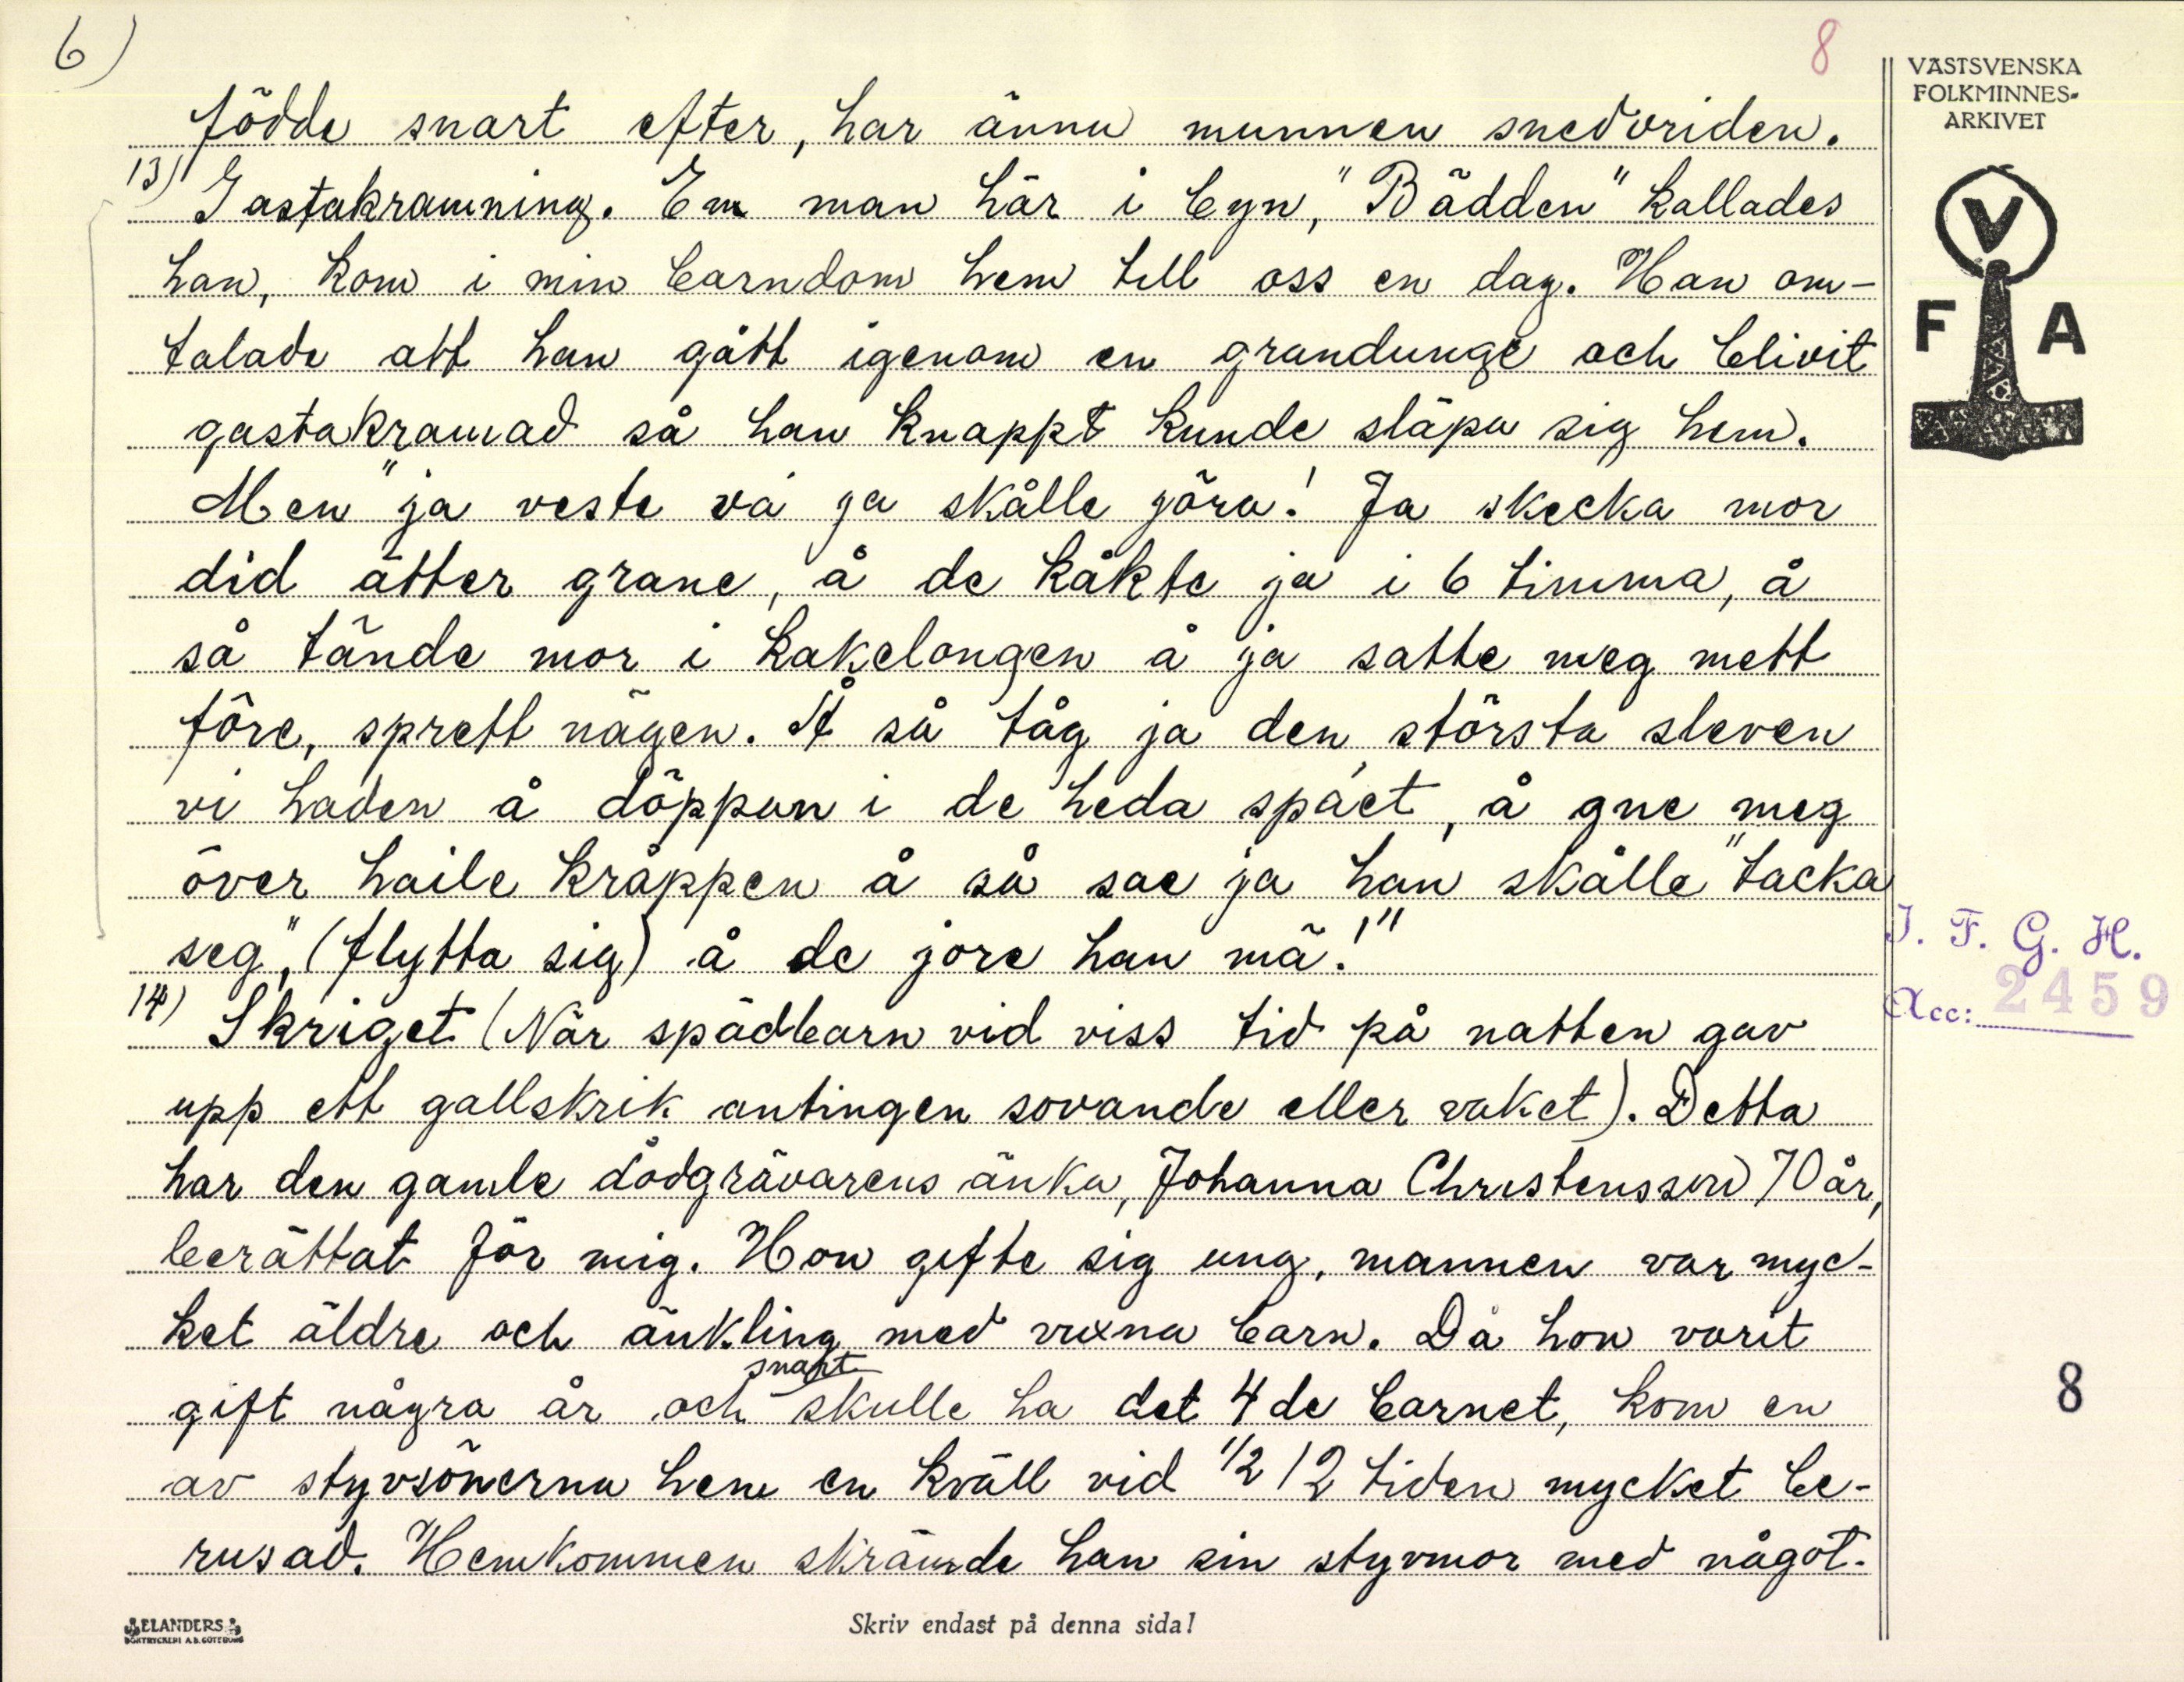 6)
8
VÄSTSVENSKA
FOLKMINNES-
ARKIVET
V
F A
födde snart efter, har ännu munnen snedvriden.
13) Gastakramning. En man här i byn, "Bädden" kallades
han, kom i min barndom hem till oss en dag. Han om-
talade att han gått igenom en grandunge och blivit
gastakramad så han knappt kunde släpa sig hem.
Men "ja veste va ja skålle jöra! Ja skecka mor
did ätter grane, å de kåkte ja i 6 timma, å
så tände mor i kakelongen å ja satte meg mett
före, sprett nägen. Å så tåg ja den största sleven
vi haden å döppan i de heda spáet, å gne meg
över haile kråppen å så sae ja han skålle "tacka
seg", (flytta sig) å de jore han mä!"
14) Skriget (När spädbarn vid viss tid på natten gav
upp ett gallskrik antingen sovande eller vaket). Detta
har den gamle dödgrävarens änka, Johanna Christensson 70 år,
berättat för mig. Hon gifte sig ung, mannen var myc-
ket äldre och änkling med vuxna barn. Då hon varit
gift några år och snart skulle ha det 4de barnet, kom en
av styvsönerna hem en kväll vid 1/2 12 tiden mycket be-
rusad. Hemkommen skrämde han sin styvmor med något-
I. F. G. H.
Acc: 2459
8
ELANDERS
BOKTRYCKERI A.B. GÖTEBORG
Skriv endast på denna sida!